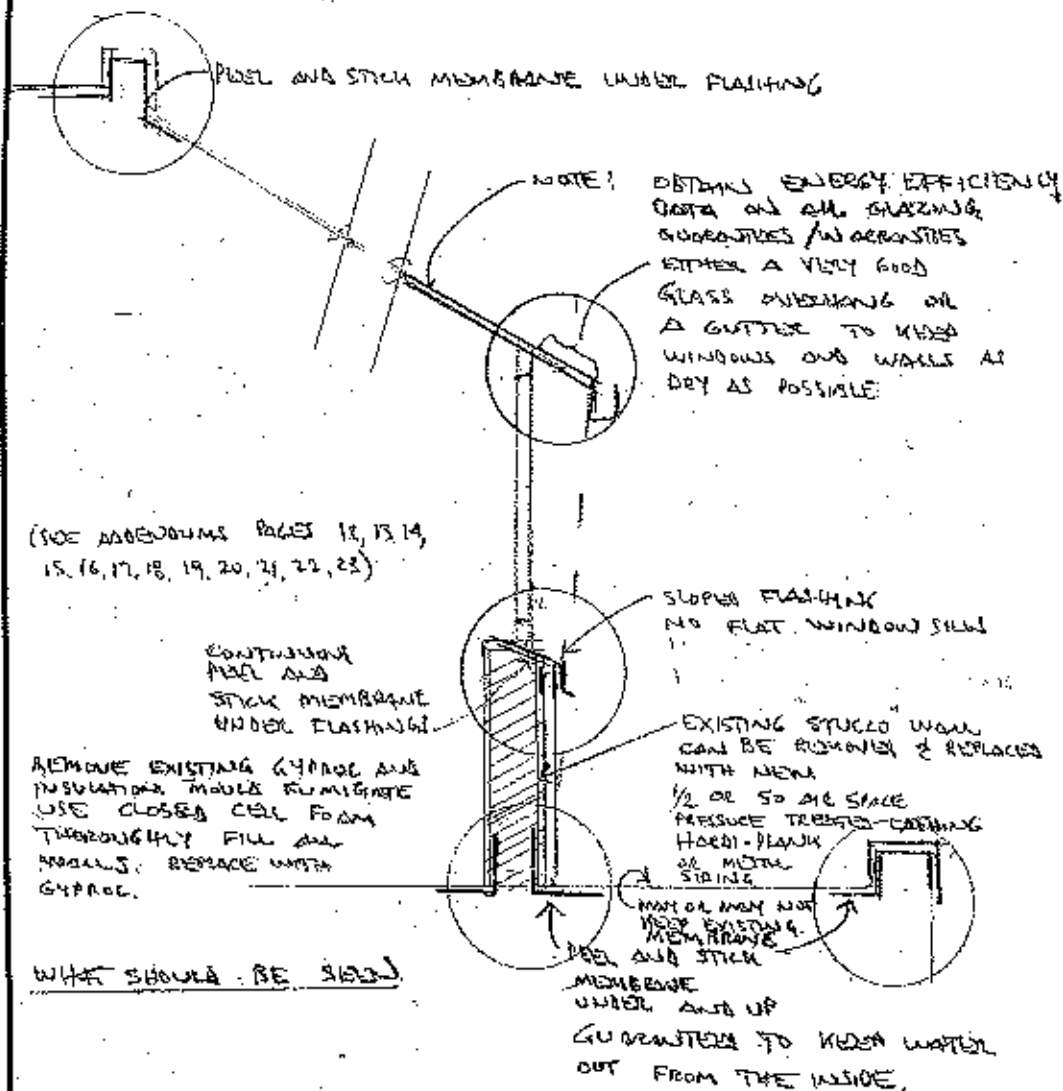 PEEL AND STICK MEMBRANE UNDER FLASHING
NOTE: OBTAIN ENERGY EFFICIENCY
DATA ON ALL GLAZING
GUARANTEES / WARRANTIES
EITHER A VERY GOOD
GLASS OVERHANG OR
A GUTTER TO KEEP
WINDOWS AND WALLS AS
DRY AS POSSIBLE
(SEE ADDENDUMS PAGES 12, 13, 14,
15, 16, 17, 18, 19, 20, 21, 22, 23)
SLOPED FLASHING
NO FLAT WINDOW SILLS
CONTINUOUS
PEEL AND
STICK MEMBRANE
UNDER FLASHINGS
EXISTING STUCCO WALL
CAN BE REMOVED & REPLACED
WITH NEW
1/2 OR SO AIR SPACE
PRESSURE TREATED
HARDI-PLANK
OR METAL
SIDING
REMOVE EXISTING GYPROC AND
INSULATION MOULD FUMIGATE
USE CLOSED CELL FOAM
THOROUGHLY FILL ALL
WALLS. REPLACE WITH
GYPROC.
MAY OR MAY NOT
KEEP EXISTING
MEMBRANE
PEEL AND STICK
MEMBRANE
UNDER AND UP
GUARANTEES TO KEEP WATER
OUT FROM THE INSIDE.
WHAT SHOULD BE SEEN